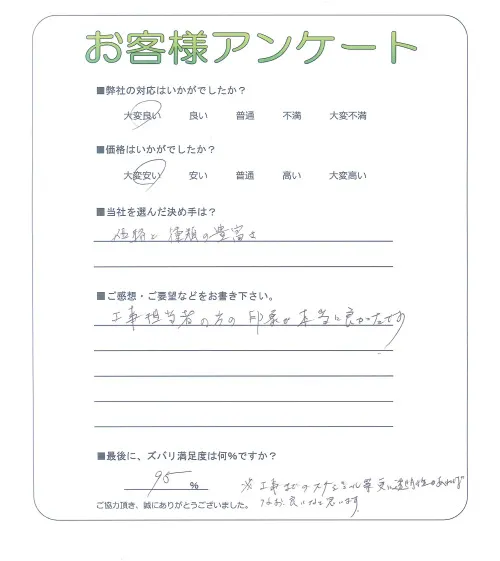 お客様アンケート
■弊社の対応はいかがでしたか？
大変良い 良い 普通 不満 大変不満
■価格はいかがでしたか？
大変安い 安い 普通 高い 大変高い
■当社を選んだ決め手は？
価格と種類の豊富さ
■ご感想・ご要望などをお書き下さい。
工事担当者の方の印象が本当に良かったです
■最後に、ズバリ満足度は何％ですか？
95 %
※工事までのスケジュール等 更に透明性があれば
なお良いなと思います
ご協力頂き、誠にありがとうございました。